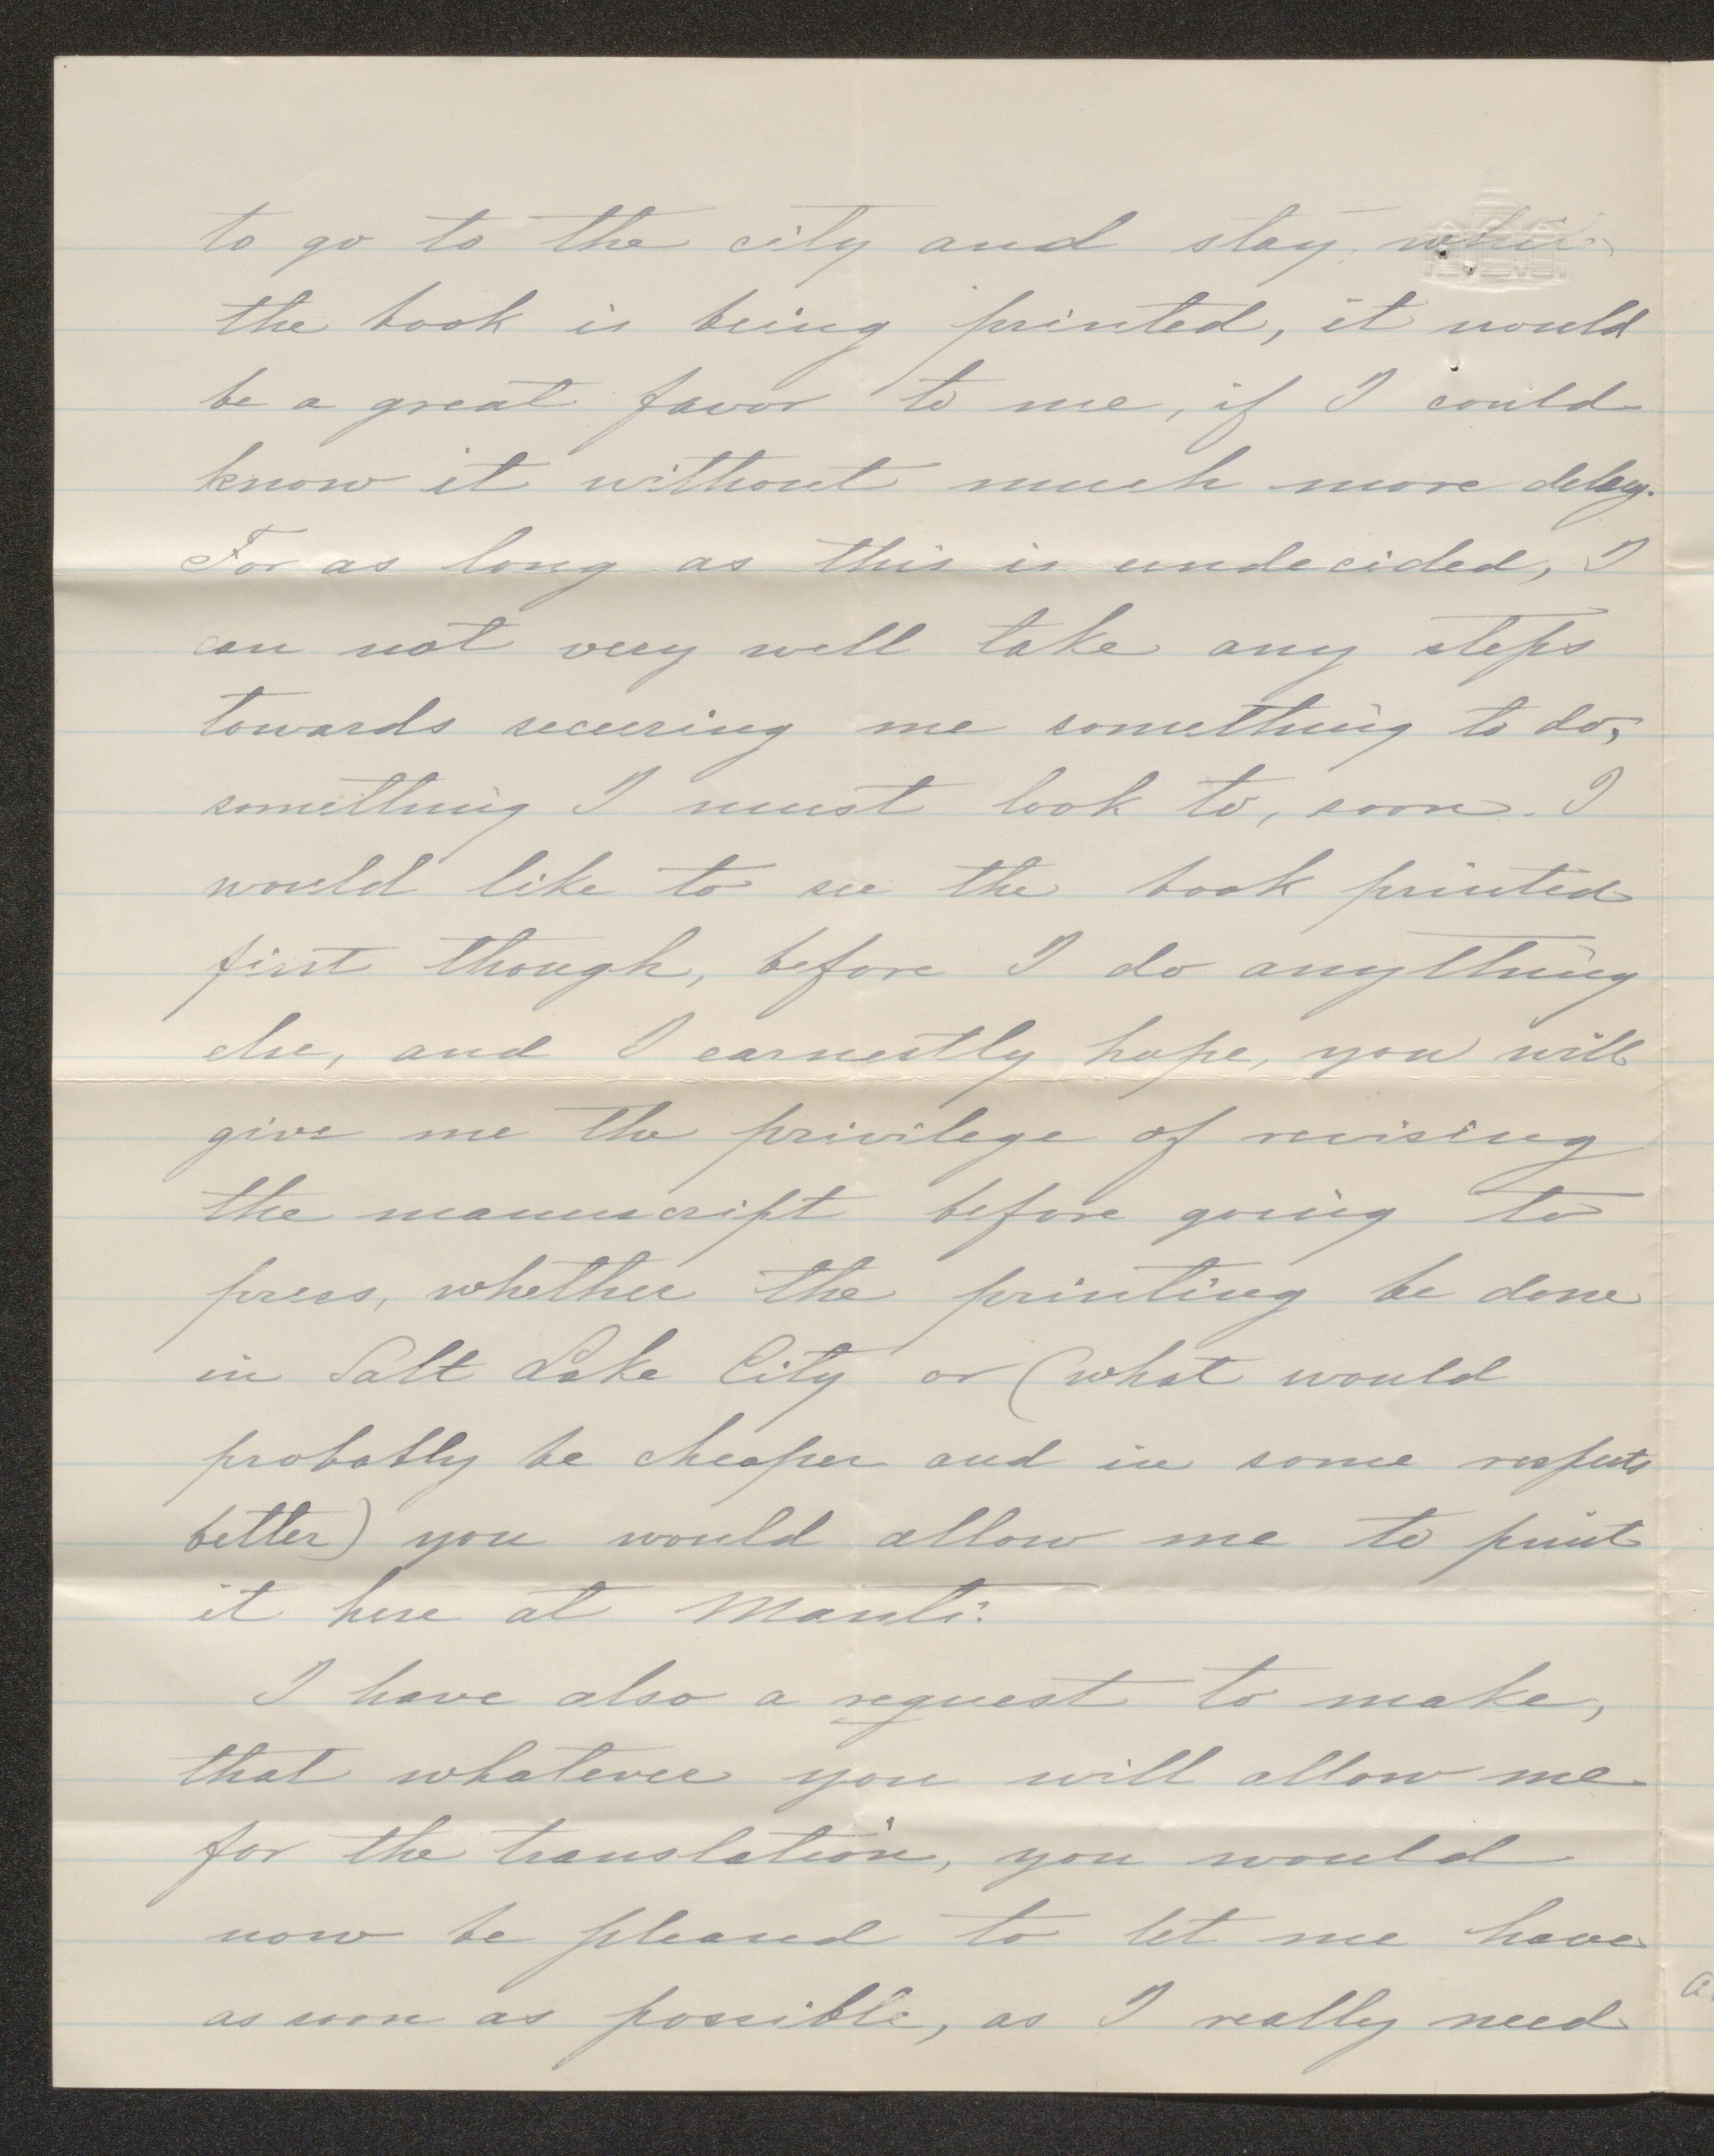 to go to the city and stay, while
the book is being printed, it would
be a great favor to me, if I could
know it without much more delay.
For as long as this is undecided, I
can not very well take any steps
towards securing me something to do,
something I must look to, soon. I
would like to see the book printed
first though, before I do anything
else, and I earnestly hope, you will
give me the privilege of revising
the manuscript before going to
press, whether the printing be done
in Salt Lake City or (what would
probably be cheaper and in some respects
better) you would allow me to print
it here at Manti.
I have also a request to make,
that whatever you will allow me
for the translation, you would
now be pleased to let me have
as soon as possible, as I really need